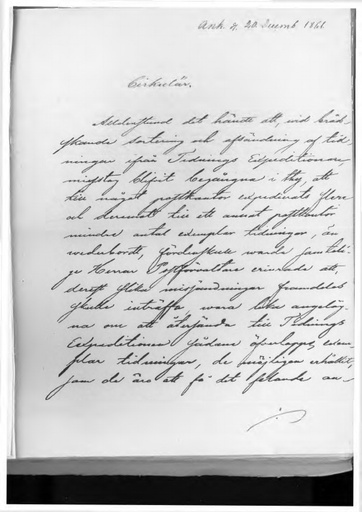 Ank d. 20 Decemb 1861
Cirkulär.
Alldenstund det händt att, vid bråd-
skande sortering och afsändning af tid-
ningar ifrån Tidnings Expeditionen,
misstag blifvit begångna i thy, att
till något postkontor expedierats flere
och deremot till ett annat postkontor
mindre antal exemplar tidningar, än
vederbordt, fördenskull warda samteli-
ge Herrar Postförvaltare erinrade att
derest slika missändningar framdeles
skulle inträffa, vara lika angeläg-
na om att återsända till Tidnings
Expeditionen sådane öfverlopps exem-
plar tidningar, de möjligen erhållit,
som de äro att få det felande an-